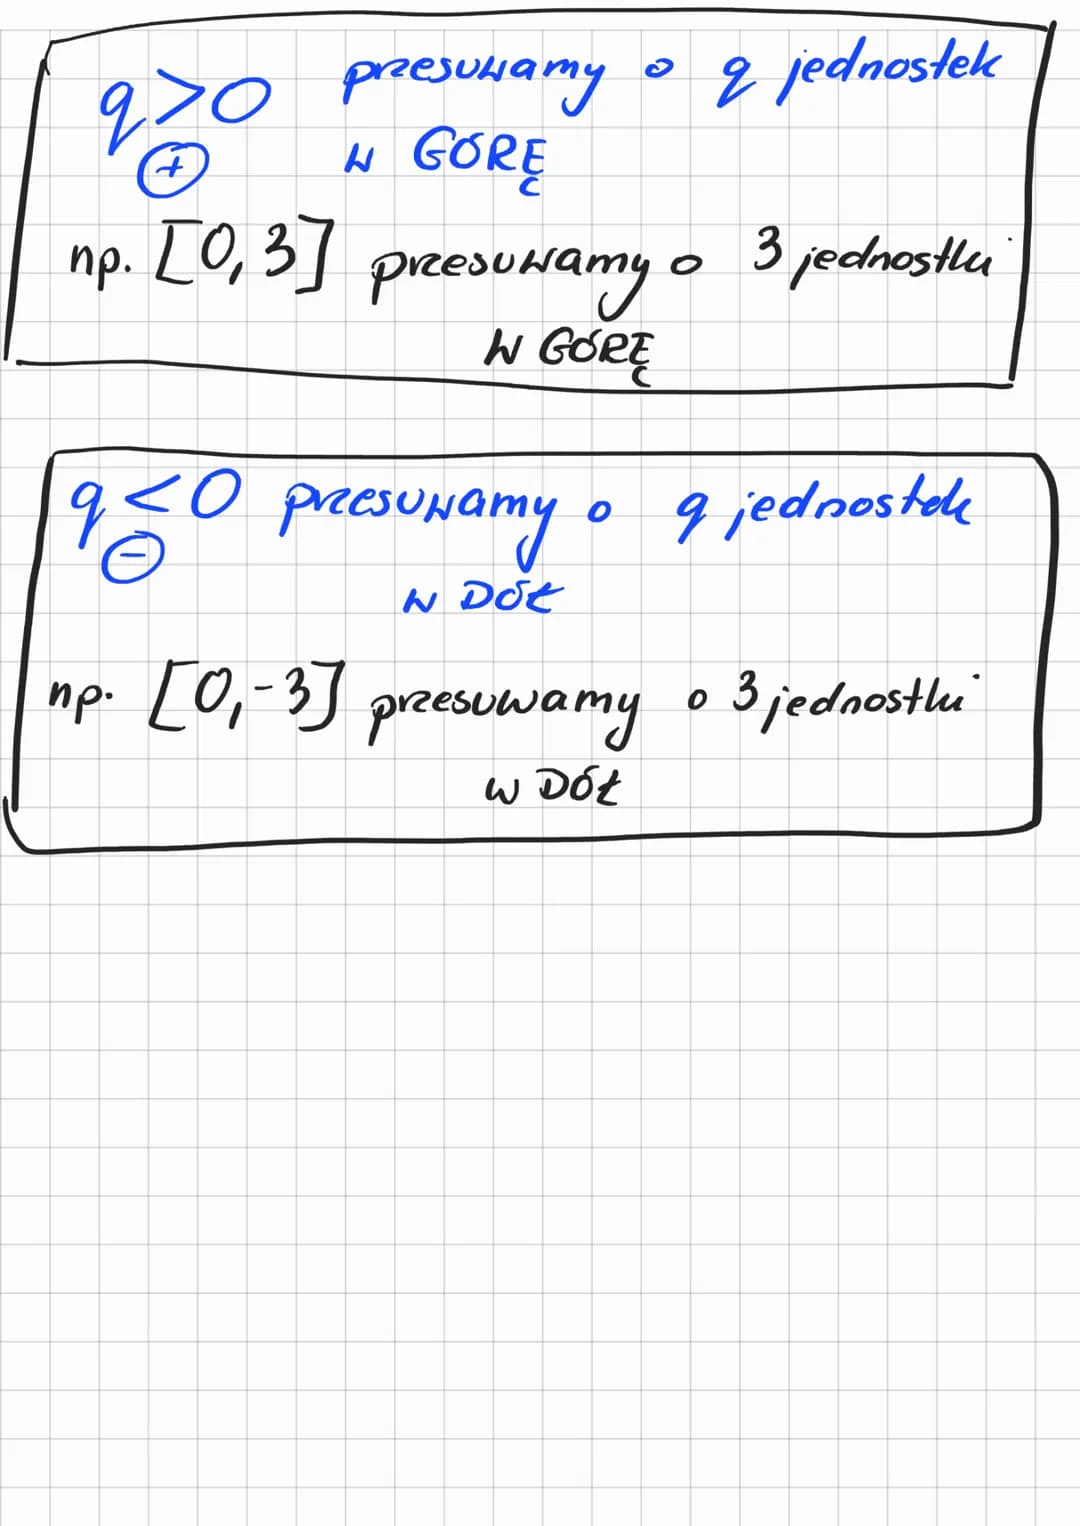 q>0 przesuwamy o q jednostek
⊕ w GÓRĘ
np. [0,3] przesuwamy o 3 jednostki
W GÓRĘ
q<0 przesuwamy o q jednostek
⊖
w DÓŁ
np. [0,-3] przesuwamy o 3 jednostki
w DÓŁ